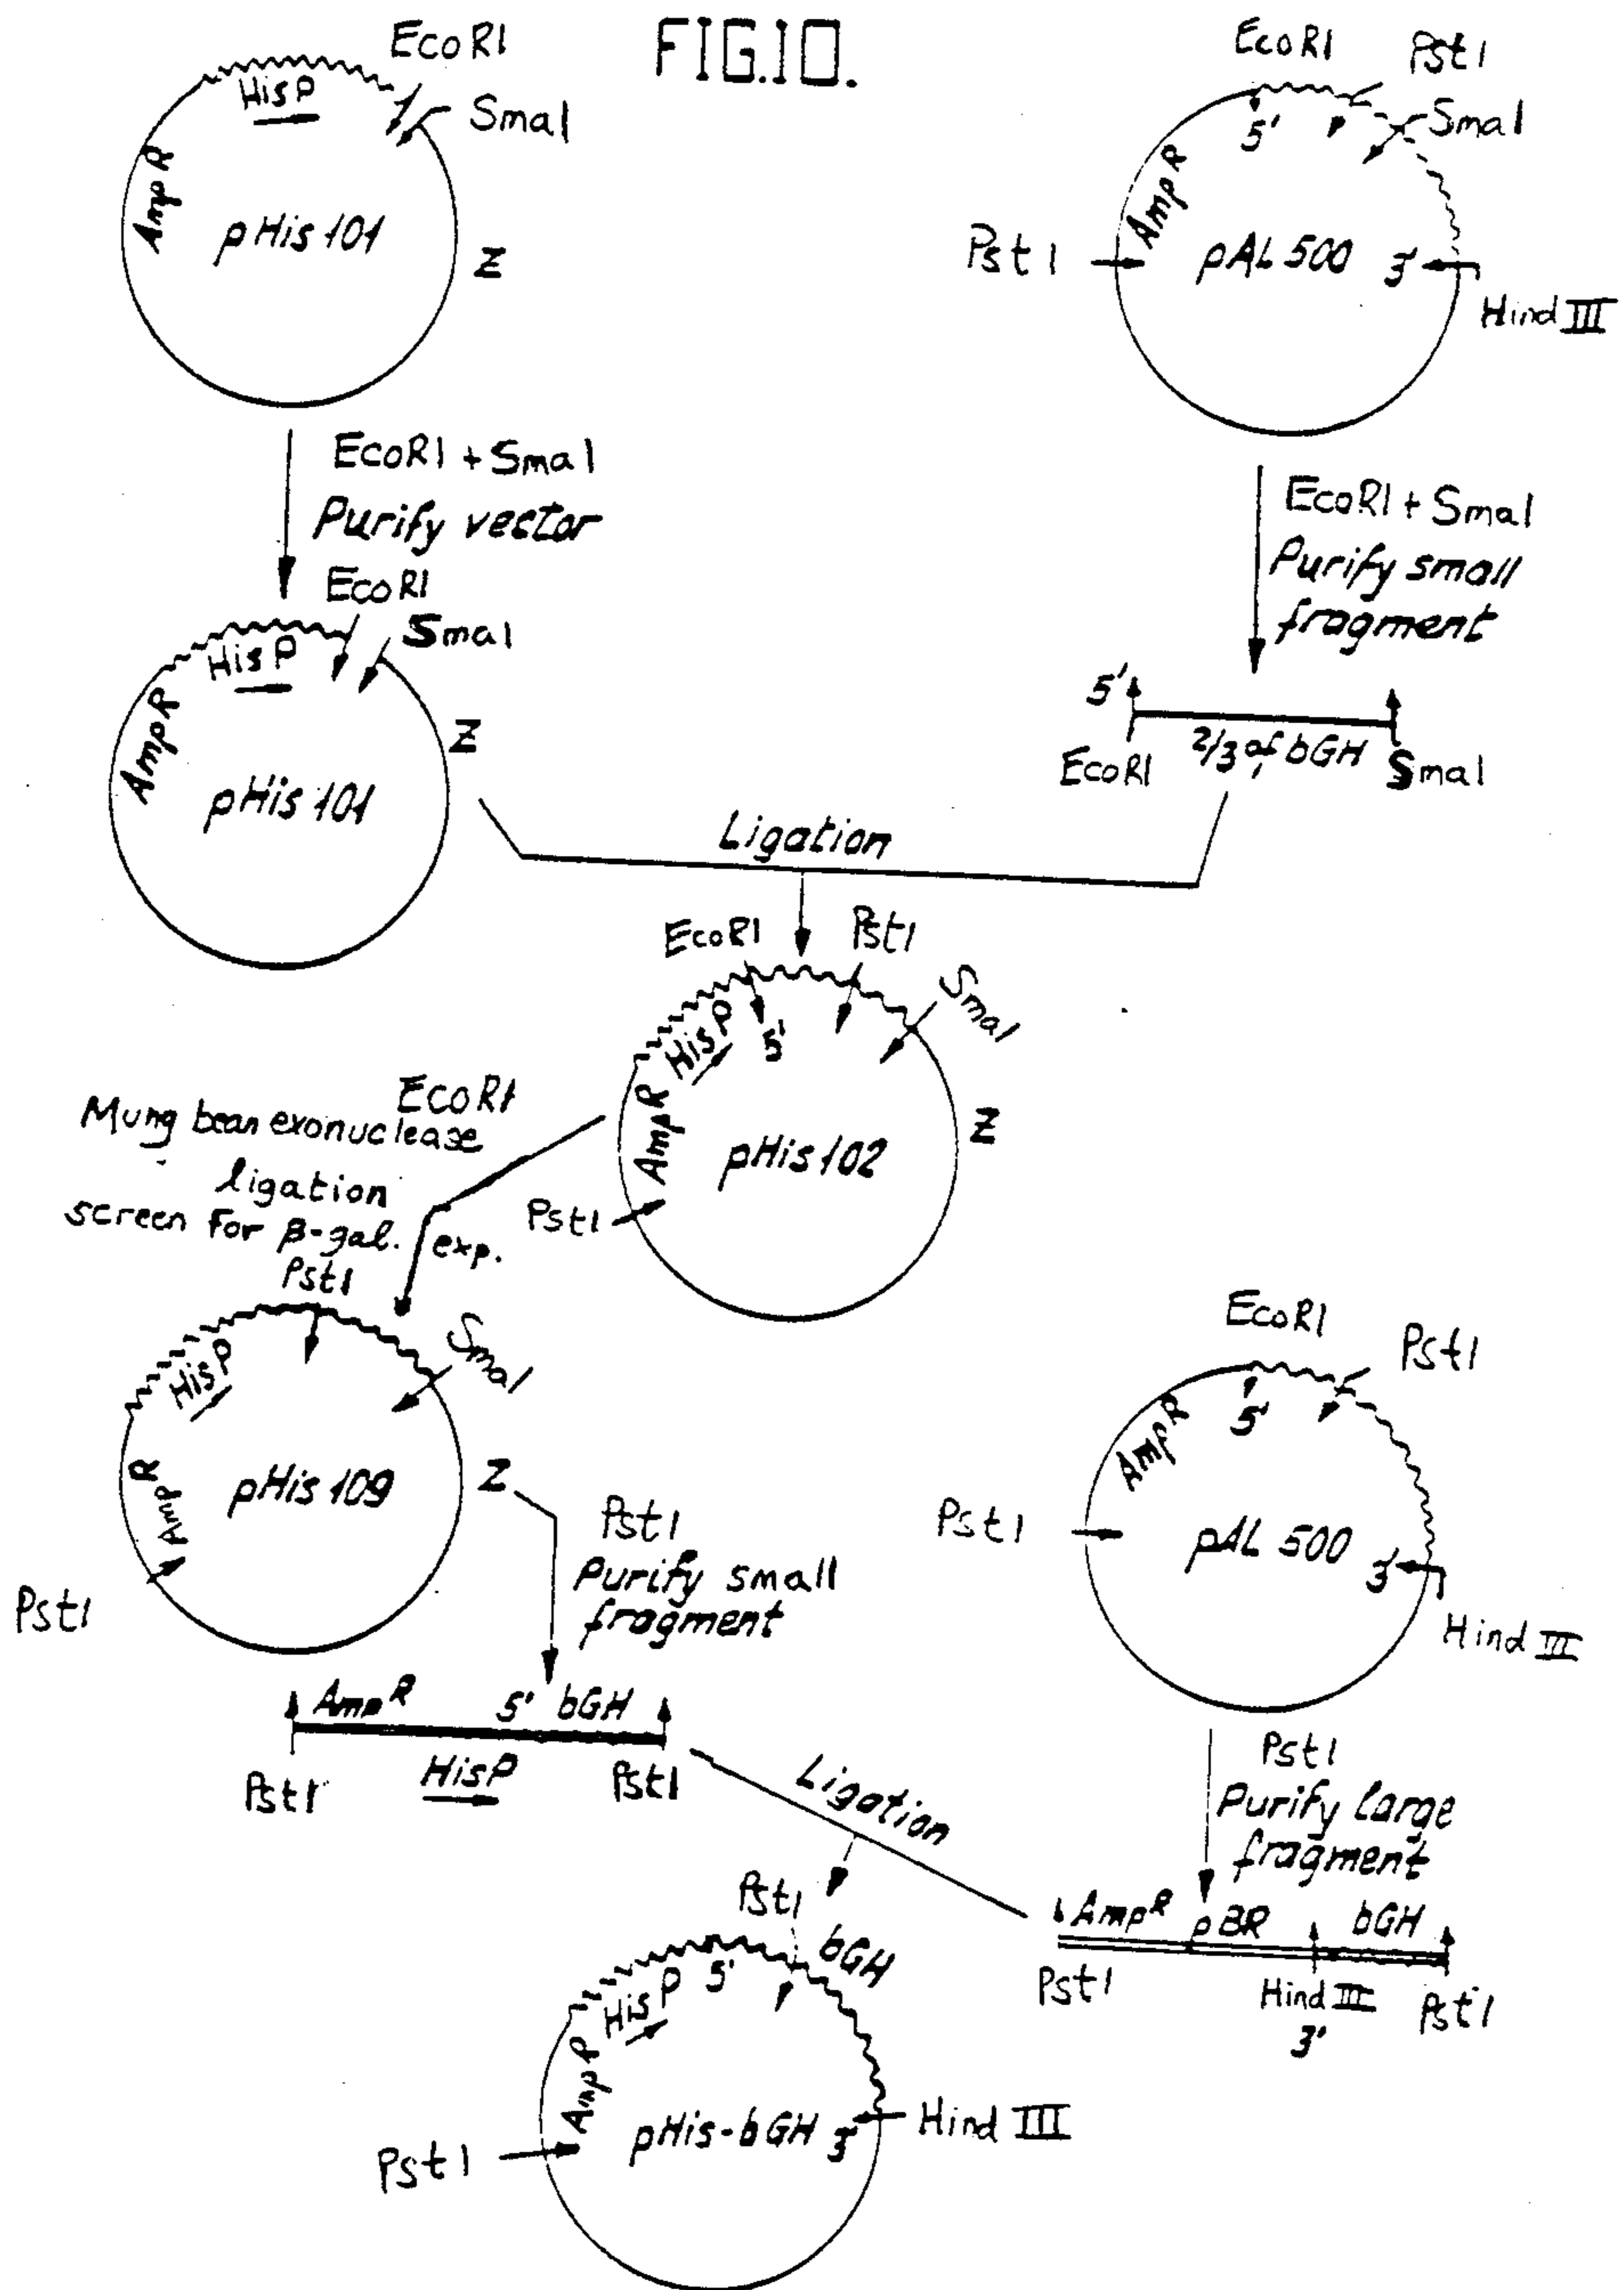 FIG.10.
EcoR1
HisP
Sma1
AmpR
pHis 101
Z
EcoR1
Pst1
Sma1
5'
AmpR
Pst1
pAL 500
3'
Hind III
EcoR1 + Sma1
Purify vector
EcoR1 + Sma1
Purify small
fragment
EcoR1
Sma1
HisP
AmpR
Z
pHis 101
5'
EcoR1
2/3 of bGH
Sma1
Ligation
EcoR1
Pst1
Sma1
HisP
5'
AmpR
Z
pHis 102
Pst1
EcoR1
Mung bean exonuclease
ligation
screen for β-gal. exp.
Pst1
Sma1
HisP
AmpR
pHis 109
Z
Pst1
Pst1
Purify small
fragment
EcoR1
Pst1
5'
AmpR
Pst1
pAL 500
3'
Hind III
AmpR
5' bGH
Pst1
HisP
Pst1
Ligation
Pst1
Purify large
fragment
AmpR
pBR
bGH
Pst1
Hind III
3'
Pst1
Pst1
bGH
HisP
5'
AmpR
pHis-bGH
3'
Hind III
Pst1